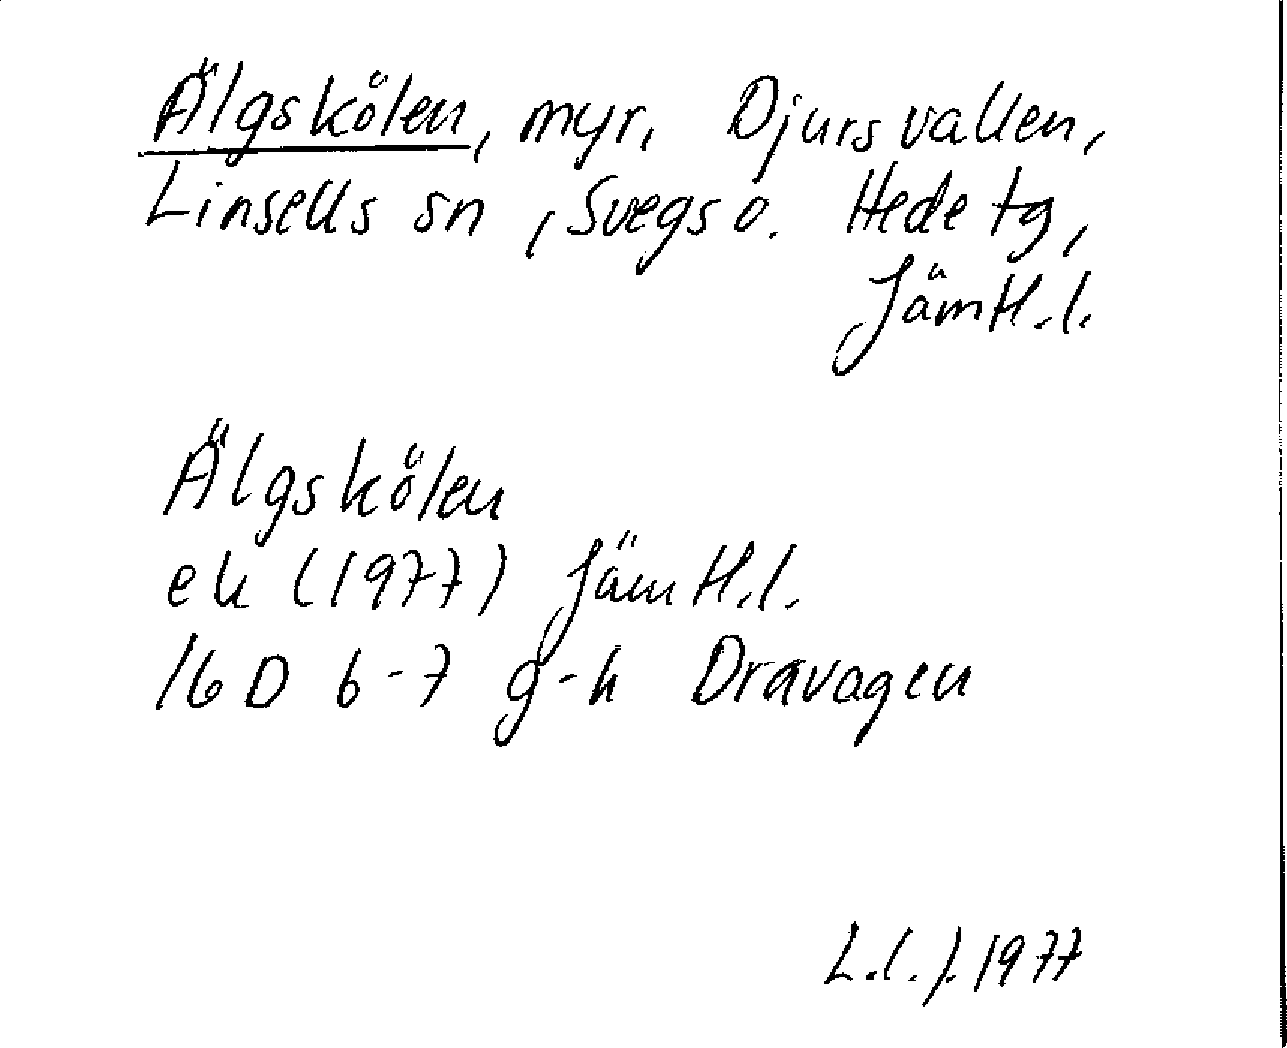 Älgskölen, myr, Djursvallen,
Linsells sn, Svegs o. Hede tg,
Jämtl.l.
Älgskölen
ek (1977) Jämtl.l.
16 D 6-7 g-h Dravagen
L.l.j. 1977